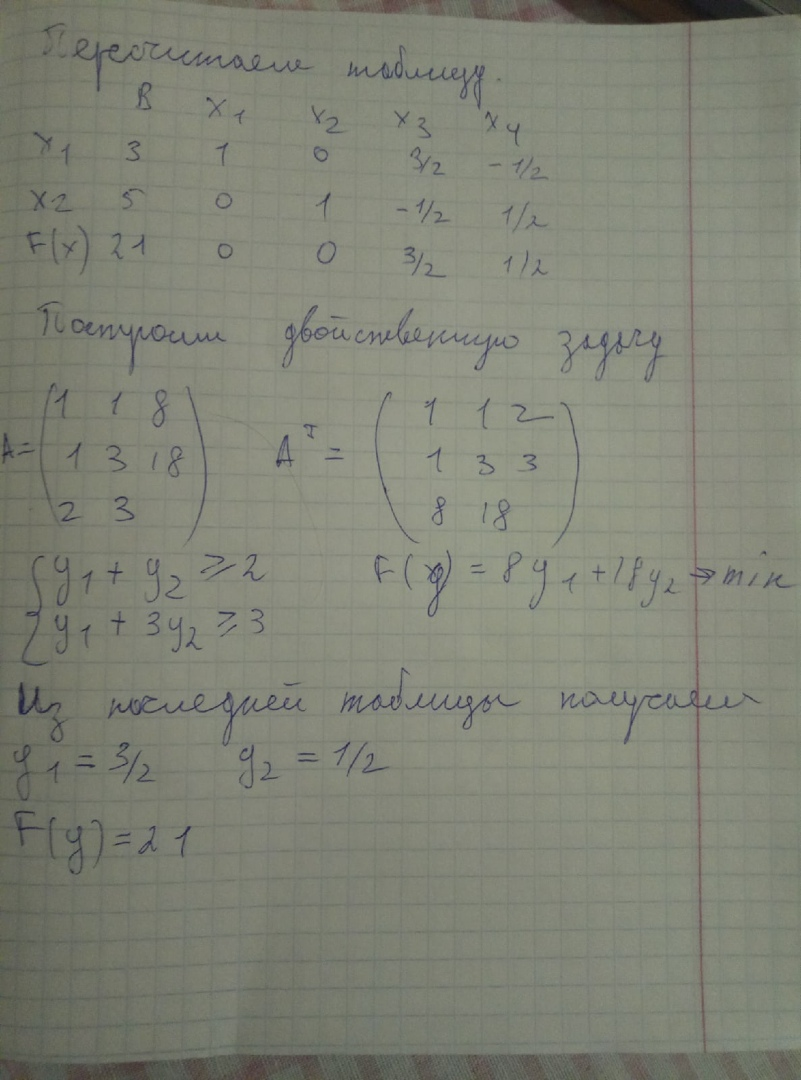 Пересчитаем таблицу.
B x1 x2 x3 x4
x1 3 1 0 3/2 -1/2
x2 5 0 1 -1/2 1/2
F(x) 21 0 0 3/2 1/2
Построим двойственную задачу
A= (1 1 8 Aᵀ = (1 1 2
1 3 18 1 3 3
2 3) 8 18)
{y1 + y2 ≥ 2 F(y) = 8y1 + 18y2 → min
y1 + 3y2 ≥ 3
Из последней таблицы получаем
y1 = 3/2 y2 = 1/2
F(y) = 21